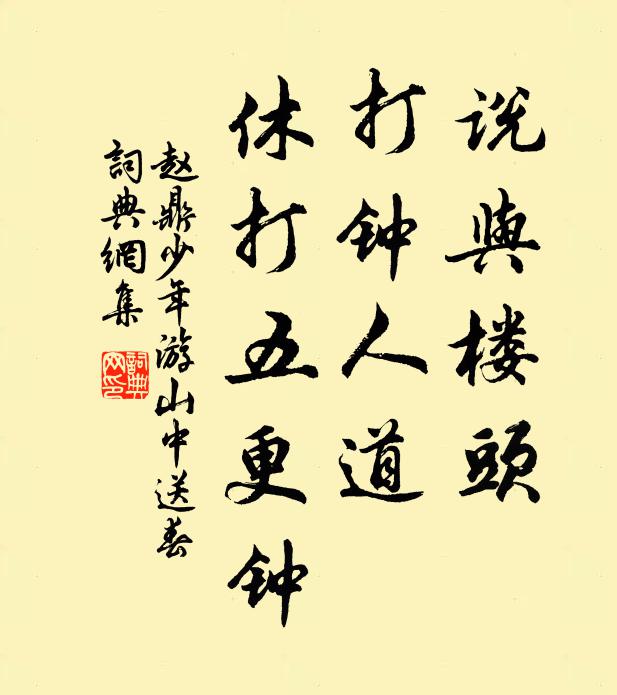 说與楼頭
打钟人道
休打五更钟
赵鼎少年游山中送春
詞典網集
詞典網印